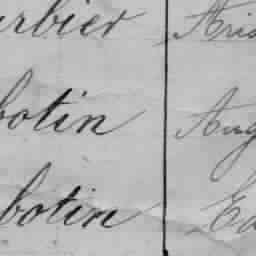 urbier Aris
botin Aug
botin Ed